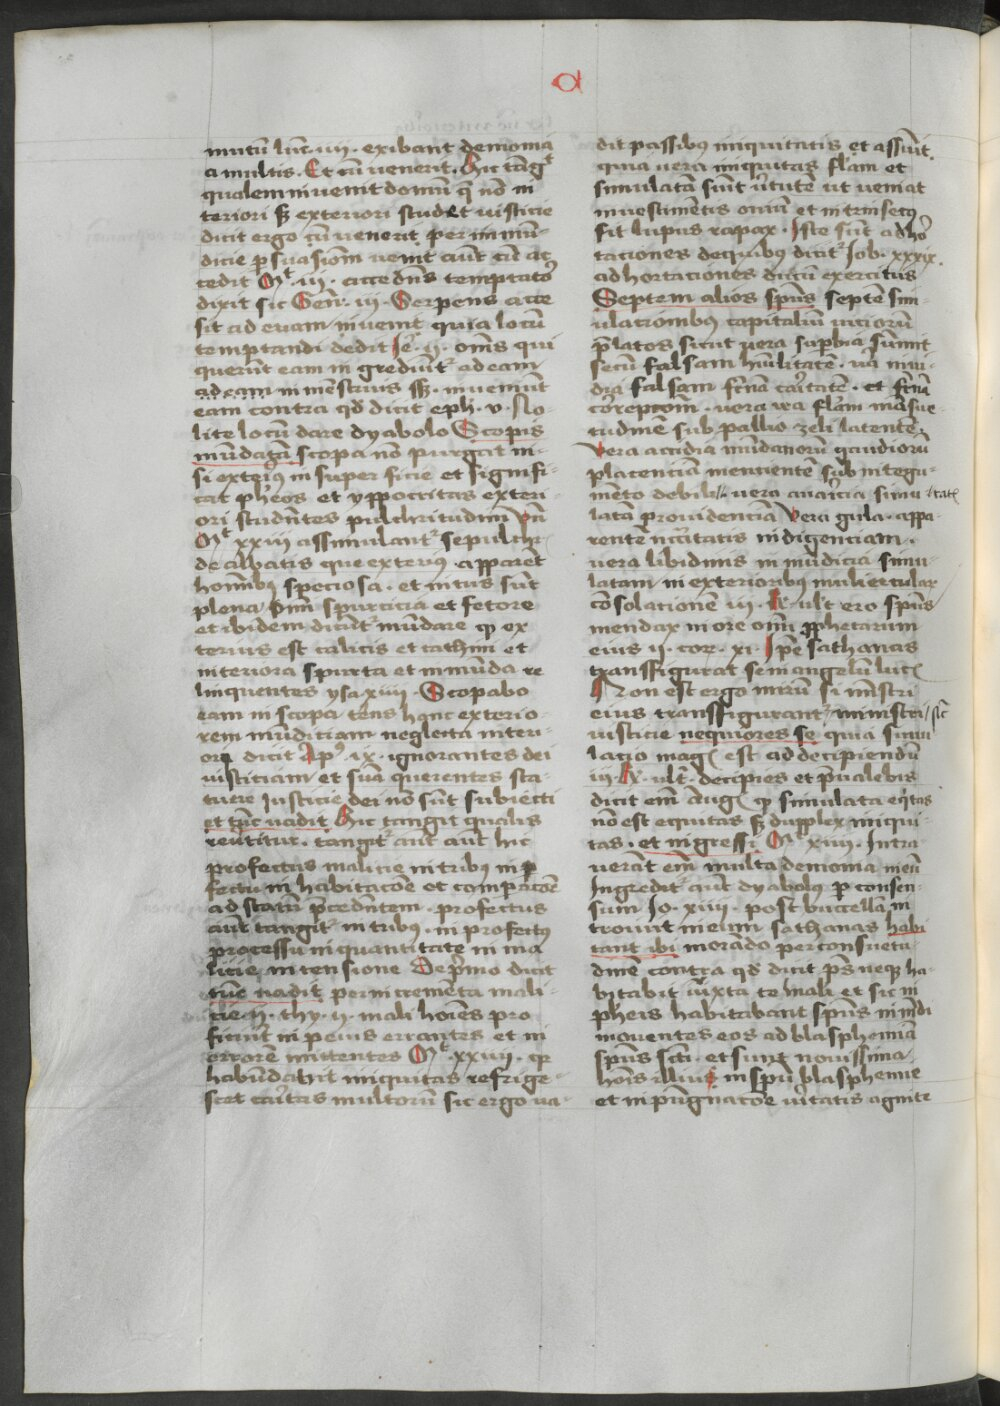 a
mutū luc̄ · iiij · exibant demonia
a multis · Et cū venerit · Hic tāgit̉
qualem invenit domū q̄ nō in
teriori sꝫ exteriori studet iusticie
dicit ergo cū venerit per inmūn-
dicie p̄suasiom̄ venit aūt cū ac
cedit Mt̉ · iij · accedn̄s temptator̉
dixit sic Gen̄ · iij · Serpens acce
sit ad evam invenit quia locū
temptandi dedit Ie · ij · om̄s qui
querūt eam in grediūt̉ ad eam
ad eam in mēstruis sꝫ · inveniūt
eam contra qd̄ dicit eph · v · No-
lite locū dare dyabolo Scopis
mūdatā scopa nō purgat ni-
si exteriꝯ in super ficie et signifi-
cat ph̄eos et yppocritas exteri-
ori studētes pulchritudini Vn̄
Mt̉ xxiij assimulant̉ sepulchr̉
dealbatis que exteriꝯ · apparēt
hom̄ibꝯ speciosa · et intus sūt
plena om̄i spurcicia et fetore
et ibidem dicūt̉ mūdare qꝫ ex
terius est calicis et cathini et
interiora spurca et inmūda re
linquentes ysa xiiij · Scopabo
eam in scopa tēns hanc exterio-
rem mūdiciam neglecta interi-
ora dicit Ap̉ · ix · ignorantes dei
iusticiam et suā querentes sta-
tuere Justicie dei nō sūt subiecti
et tūc vadit Hic tangit qualis
revertitur · tangit̉ aūt aūt hic
profectus malicie in tribꝯ in p̄
fectu in habitacōe et compacōe
ad statū p̄cedntem · profectus
aūt tangit̉ in tribꝯ · in profectꝯ
processu in quantitate in ma
licie intensione De p̄mo dicit
tūc vadit per incremēta mali-
cie ij · thy · ij · mali hoīes pro
ficiūt in peius errantes et in
errorē mittentes Mt̉ · xxiiij · qꝛ
habūdabit iniquitas refrige-
scet caritas multorū sic ergo va-
dit passibꝯ iniquitatis et assūit
quia vera iniquitas fl̄am et
simulatā sūit v̉tutē ut veniat
in vestimētis oviū et intrinsecꝯ
sit lupus rapax · Iste sūt adhor̉
taciones de quibꝯ dicit̉ Job · xxxix ·
adhortaciones ducū exercitus
Septem alios sp̄us septē sim-
ulacionibꝯ capitaliū viciorū
p̄latos sicut vera supbia sūmit
secū falsam hūilitatē · v̉a invi-
dia falsam fr̄nā caritatē · et fr̄nā
cor̉epcom̄ · vera ira fl̄am māsue-
tudinē sub pallio zeli latentē
Vera accidia mūdanorū gaudiorū
placenciā mencientē sub integu-
mēto debili // vera avaricia simu /tatꝭ
latā providenciā Vera gula · appa-
rentē necc̄itatis indigenciam ·
vera libidinis inmūdicia simu-
latam in exterioribꝯ mulierculaꝝ
cōsolacionē iij · R̉ · ult̉ ero sp̄us
mendax in ore om̄i p̄phetarum
eius ij · cor · xi · Ip̄e sathanas
transfigurat se in angelū lucꝭ
Non est ergo mirū si mīstri
eius transffigurant̉ ministri /sic̄
iusticie nequiores se quia simu
lacio magꝭ est ad decipiendū
iij · R̉ · ult̉ · decipies et p̄valebis
dicit em̄ Augꝭ qꝫ simulata eq̉tas
nō est equitas sꝫ dupplex iniqui-
tas · et ingressi Mt̉ xiiij · Intra
verāt em̄ multa demonia in eū
Ingredit̉ aūt dyabolꝯ p̄ consen-
sum Jo · xiiij · post buccellā in
troivit in eum sathanas habi
tant ibi morādo per consuetu-
dinē contra qd̄ dicit ps̄ neqꝫ ha-
bitabit iuxta te mali et sic in
ph̄eis habitabant sp̄us inmūdi
moventes eos ad blasphemiā
sp̄us sc̄ti · et sunt novissima
hoīs illius in sp̄u blasphemie
et inpugnacōe v̉itatis agnite